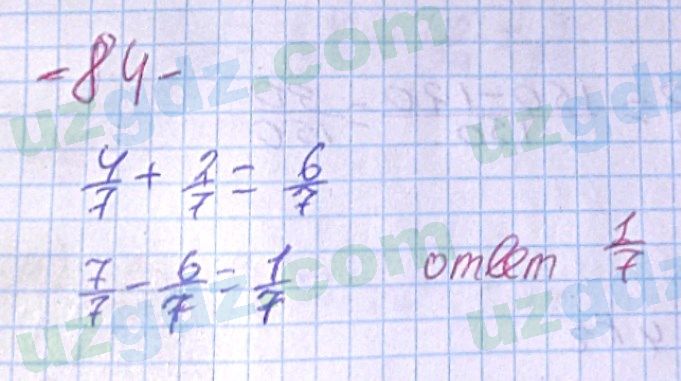 - 84 -
4/7 + 2/7 = 6/7
7/7 - 6/7 = 1/7 ответ 1/7
uzgdz.com
uzgdz.com
uzgdz
uzgdz